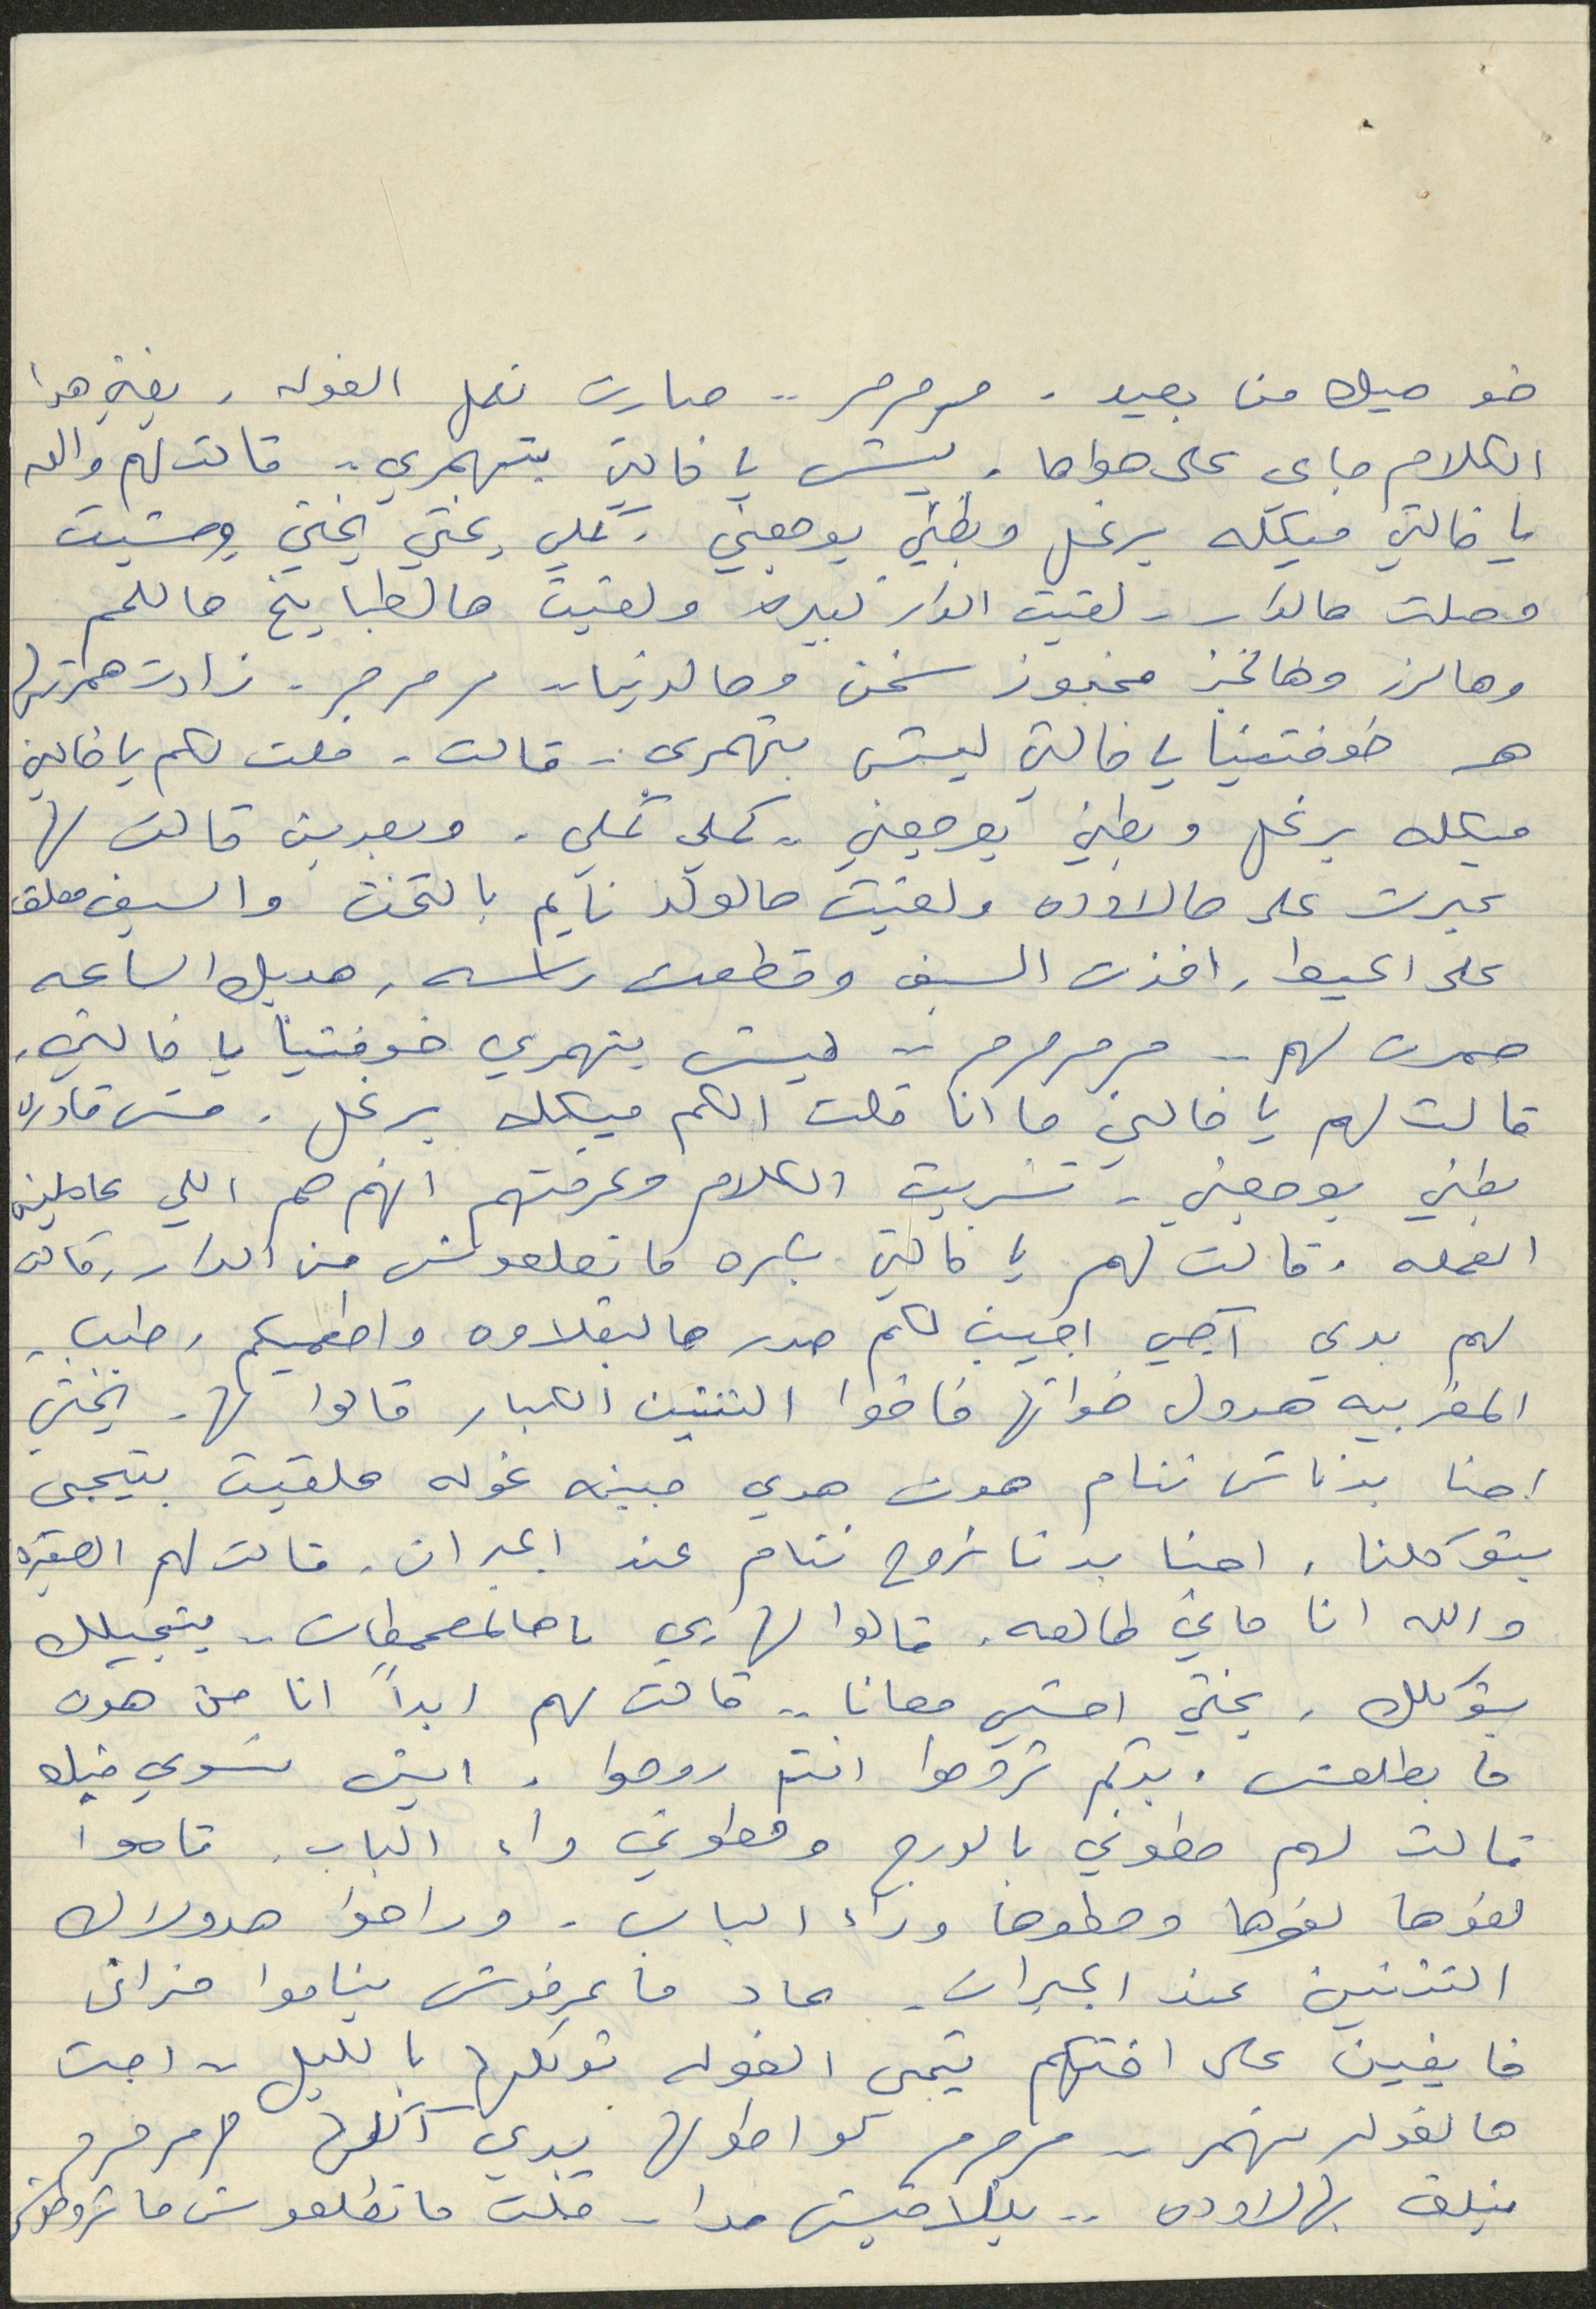 ضو هيك من بعيد . مرمرمر .. صارت نعل الغوله . يعني هدا
الكلام جاي على هواها . ليش يا خالتي بتهمري .. قالت لهم والله
يا خالتي ميكله برغل وبطني يوجعني . كملي يختي يختي ومشيت
وصلت هالدار .. لقيت الدار كبيره ولقيت هالطبايخ هاللحم
وهالرز وهالخبز مخبوز سخن وهالدنيا .. مرمرمر . زادت همرتها
هـ خوفتينا يا خالتي ليش بتهمري .. قالت . قلت لكم يا خالتي
ميكله برغل وبطني يوجعني .. كملي كملي . وبعدين قالت لها
عبرت على هالاوده ولقيت هالولد نايم بالتخت والسيف معلق
على الحيط . اخذت السيف وقطعت راسه . هديك الساعه
همرت لهم .. مرمرمرمر .. ليش بتهمري خوفتينا يا خالتي .
قالت لهم يا خالتي ما انا قلت الكم ميكله برغل . مش قادره
بطني يوجعني . تشربت الكلام وعرفتهم انهم هم اللي عاملين
العمله . قالت لهم يا خالتي بكره ما تطلعوش من الدار . قالت
لهم بدي آجي اجيب لكم صدر هالبقلاوه واطعميكم . طيب .
المغربيه هدول خواتها خافوا التنتين الكبار قالوا لها . يختي
احنا بدناش ننام هون هدي مبينه غوله هلقيت بتيجي
بتوكلنا . احنا بدنا نروح ننام عند الجيران . قالت لهم الصغيره
والله انا ماني طالعه . قالوا لها يي يا هالمصمطات .. بتجيلك
بتوكلك . يختي امشي معانا .. قالت لهم ابداً انا من هون
ما بطلعش . بدكم تروحوا انتم روحوا . ايش نسوي فيك
قالت لهم حطوني بالدرج وحطوني وراء الباب . قاموا
لفوها لفوها وحطوها وراء الباب . وراحوا هدولاك
التنتين عند الجيران . عاد ما عرفوش يناموا
خايفين على اختهم تيجي الغوله توكلها بالليل .. اجت
هالغوله تهمر .. مرمرمر كواطولها بدي آكلها مرمرمر
بهالاوده .. بيلاقيش حدا .. قلت ما تطلعوش ما تروحوش